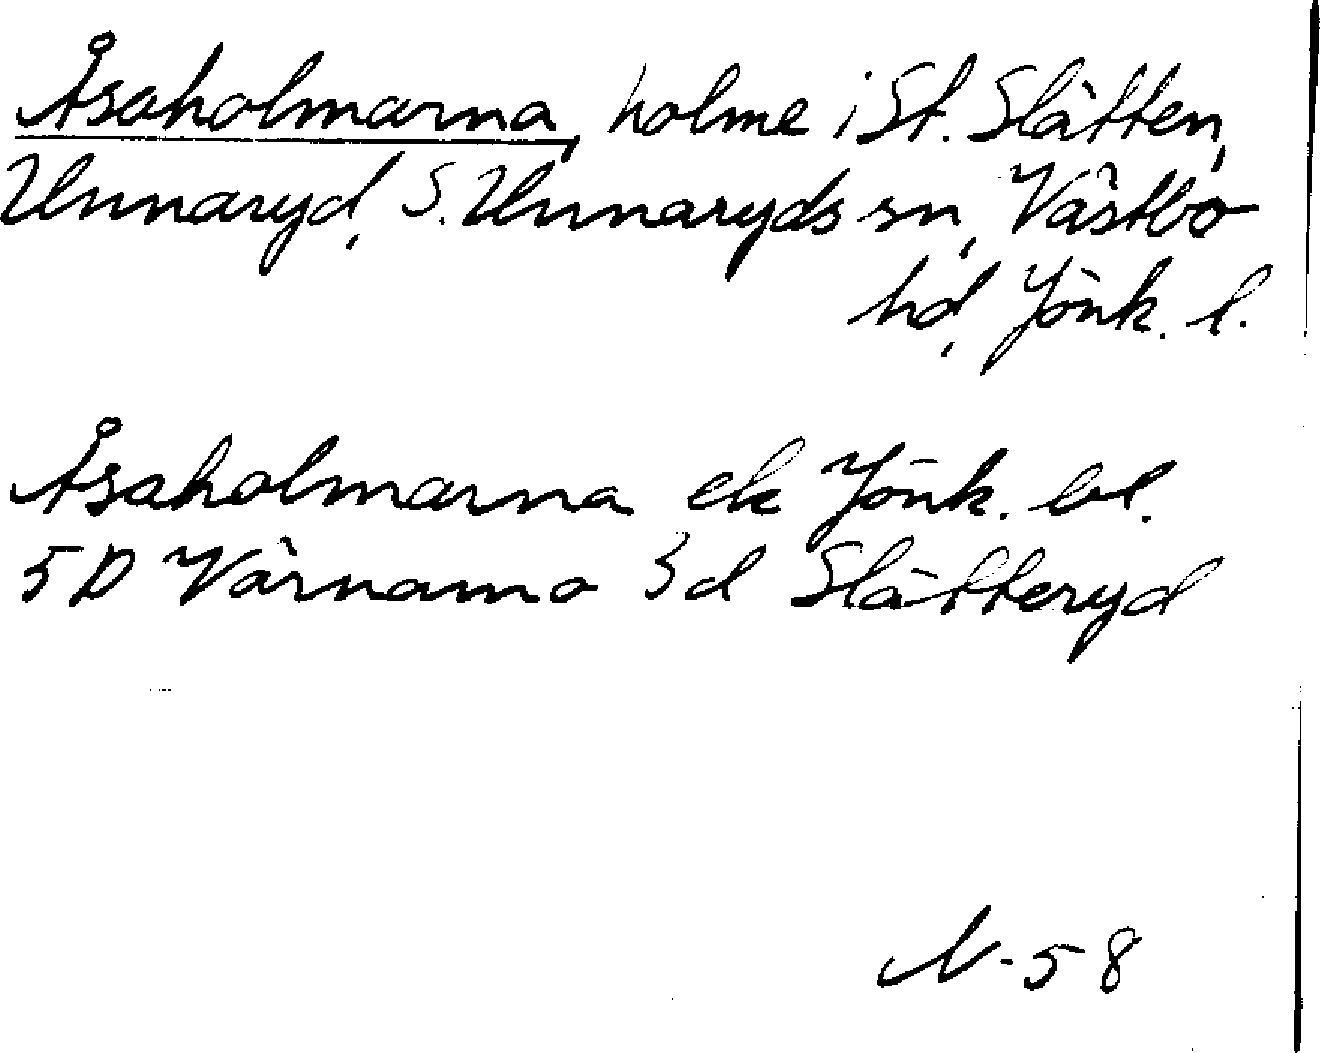 Åsaholmarna, holme i St. Slätten,
Unnaryd, S. Unnaryds sn, Västbo
hd, Jönk. l.
Åsaholmarna ek Jönk. bl.
5D Värnamo 3d Slätteryd
N-58